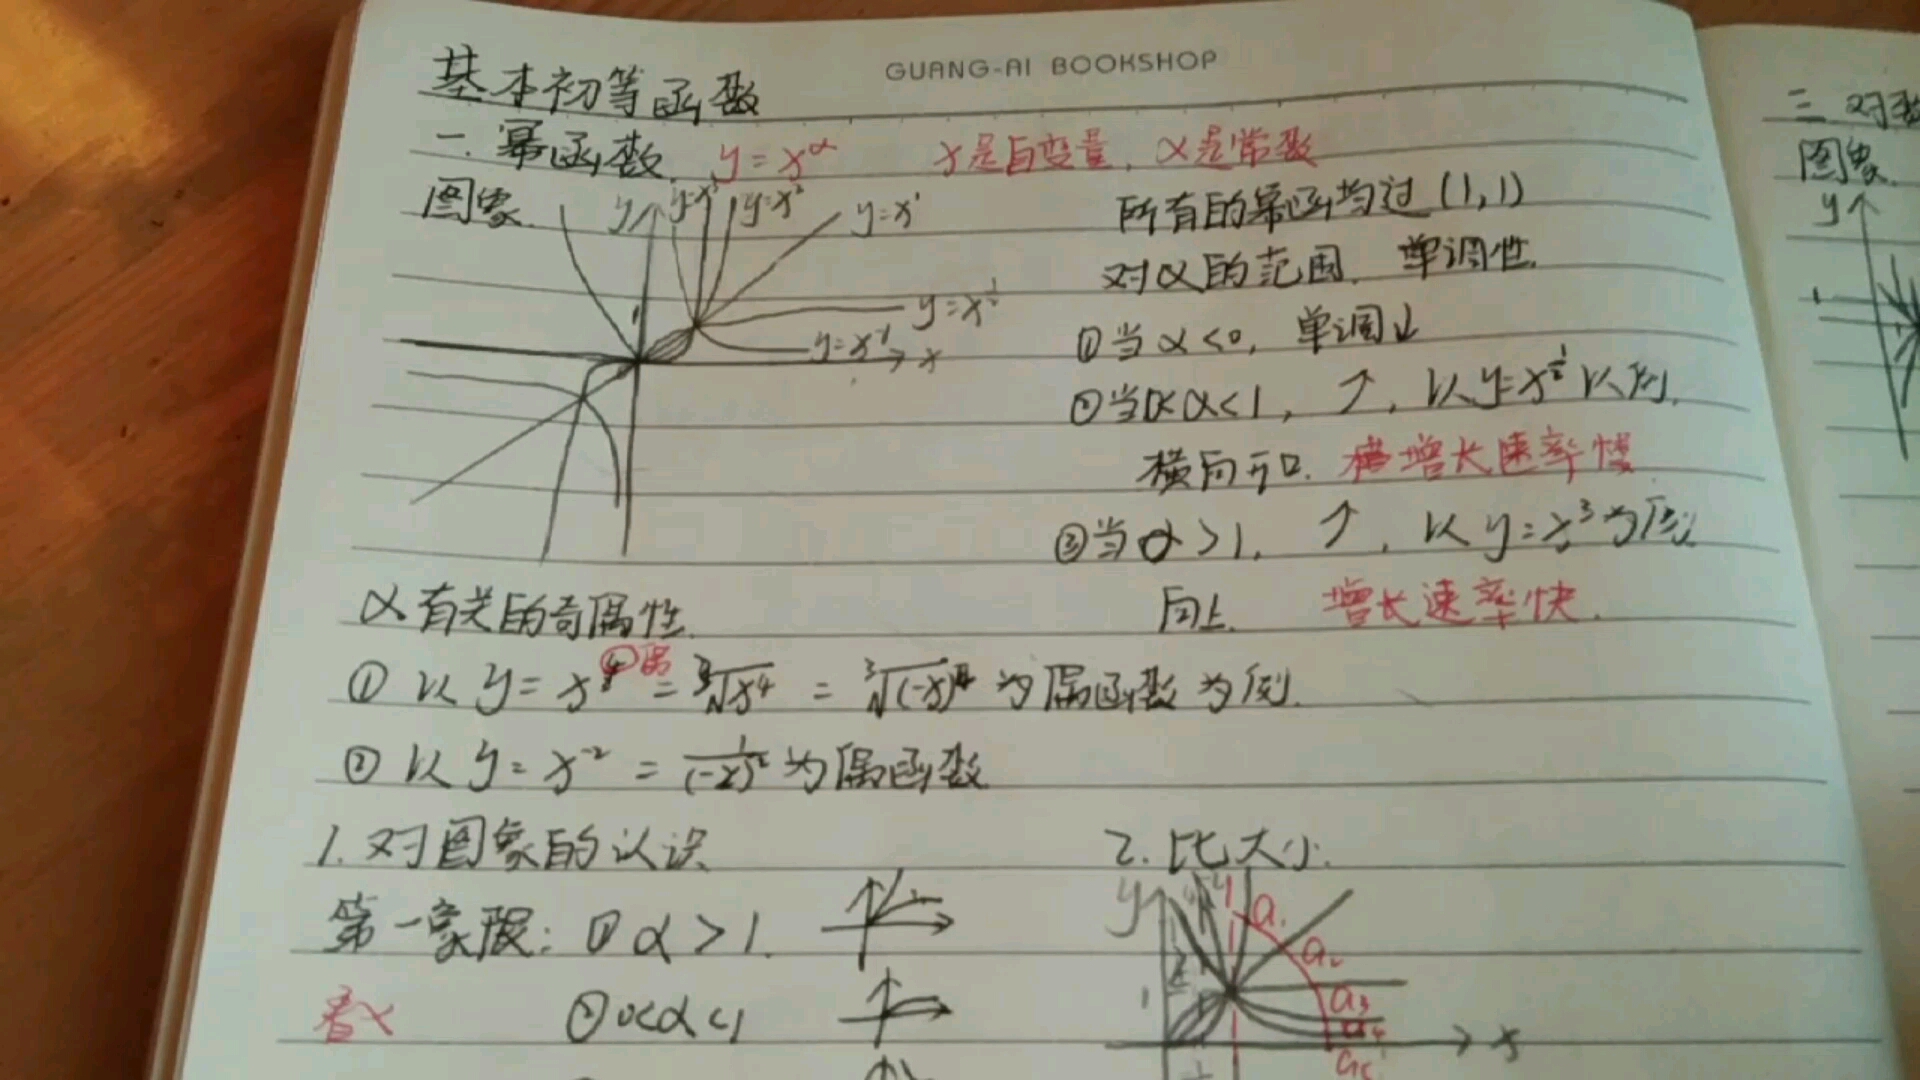 GUANG-AI BOOKSHOP
基本初等函数
一.幂函数. y=x^α x是自变量,α是常数
图象.
y y=x³ y=x² y=x¹
y=x^½
y=x⁻¹ x
1
所有的幂函均过(1,1)
对α的范围. 单调性.
①当α<0, 单调↓
②当0<α<1, ↗, 以y=x^½以例.
横向开口. 增长速率慢.
③当α>1, ↗, 以y=x³为例.
向上. 增长速率快.
α有关的奇偶性.
①以y=x = ³√x⁴ = ³√(-x)⁴ 为偶函数为例.
②以y=x⁻² = 1/(-x)² 为偶函数
1.对图象的认识
第一象限: ①α>1.
看x ②0<α<1
2.比大小.
y a₁
a₂
1 a₃
a₄
a₅ x
三.对数
图象.
y
1